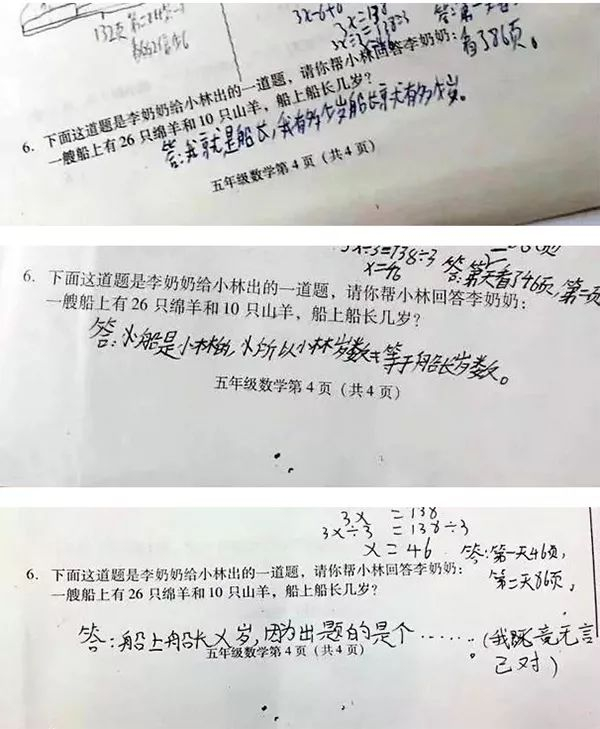 132页
3x-6+6
3x=138
3x÷3=138÷3
看了86页。
6. 下面这道题是李奶奶给小林出的一道题，请你帮小林回答李奶奶：
一艘船上有 26 只绵羊和 10 只山羊，船上船长几岁？
答:我就是船长,我有多少岁船长就有多少岁。
五年级数学第 4 页（共 4 页）
3x÷3=138÷3
x=46
答:第一天看了46页,第二
6. 下面这道题是李奶奶给小林出的一道题，请你帮小林回答李奶奶：
一艘船上有 26 只绵羊和 10 只山羊，船上船长几岁？
答:小船是小林的,所以小林岁数等于船长岁数。
五年级数学第 4 页（共 4 页）
3x = 138
3x÷3 = 138÷3
x = 46
答:第一天46页,
第二天86页。
6. 下面这道题是李奶奶给小林出的一道题，请你帮小林回答李奶奶：
一艘船上有 26 只绵羊和 10 只山羊，船上船长几岁？
答:船上船长X岁,因为出题的是个……。(我既竟无言
己对)
五年级数学第 4 页（共 4 页）